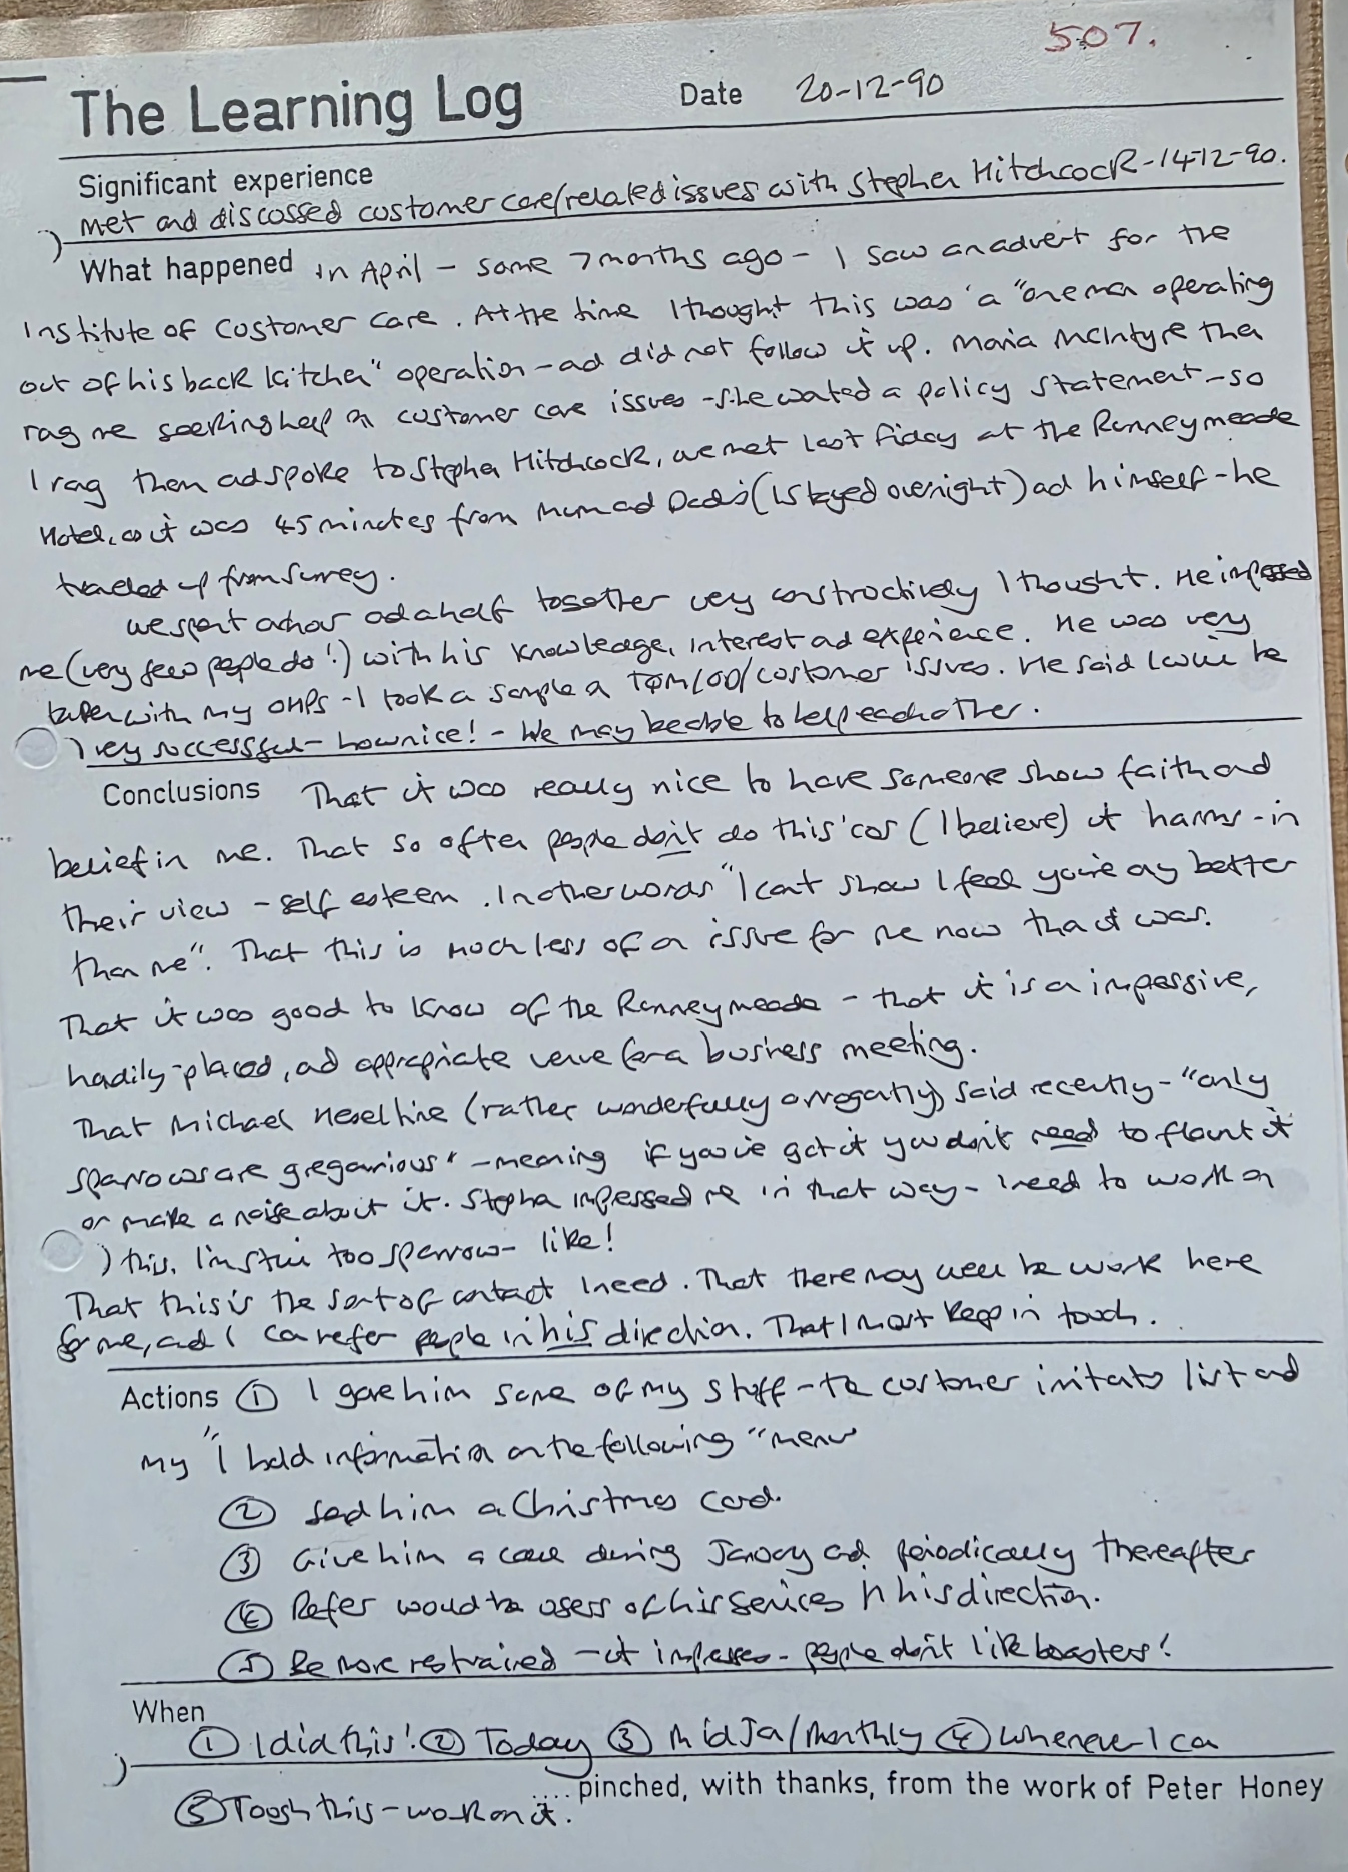 507.
The Learning Log Date 20-12-90
Significant experience
met and discussed customer care/related issues with Stephen Hitchcock - 14-12-90.
What happened in April - some 7 months ago - I saw an advert for the
Institute of Customer Care. At the time I thought this was a "one man operating
out of his back kitchen" operation - and did not follow it up. Maria McIntyre then
rang me seeking help on customer care issues - she wanted a policy statement - so
I rang them and spoke to Stephen Hitchcock, we met last Friday at the Runneymeade
Hotel, as it was 45 minutes from Mum and Dad's (I stayed overnight) and himself - he
traveled up from Surrey.
We spent an hour and a half together very constructively I thought. He impressed
me (very few people do!) with his knowledge, interest and experience. He was very
taken with my OHPs - I took a sample a TQM/OD/customer issues. He said I will be
very successful - how nice! - We may be able to help each other.
Conclusions That it was really nice to have someone show faith and
belief in me. That so often people don't do this 'cos (I believe) it harms - in
their view - self esteem. In other words "I can't show I feel you're any better
than me". That this is much less of an issue for me now than it was.
That it was good to know of the Runneymeade - that it is an impressive,
handily-placed, and appropriate venue for a business meeting.
That Michael Heseltine (rather wonderfully arrogantly) said recently - "only
sparrows are gregarious" - meaning if you've got it you don't need to flaunt it
or make a noise about it. Stephen impressed me in that way - I need to work on
this. I'm still too sparrow-like!
That this is the sort of contact I need. That there may well be work here
for me, and I can refer people in his direction. That I must keep in touch.
Actions ① I gave him some of my stuff - the customer irritants list and
my "I hold information on the following" menu
② Send him a Christmas card.
③ Give him a call during January and periodically thereafter
④ Refer would be users of his services in his direction.
⑤ Be more restrained - it impresses - people don't like boasters!
When
① I did this! ② Today ③ Mid Jan/monthly ④ Whenever I can
....pinched, with thanks, from the work of Peter Honey
⑤ Tough this - work on it.